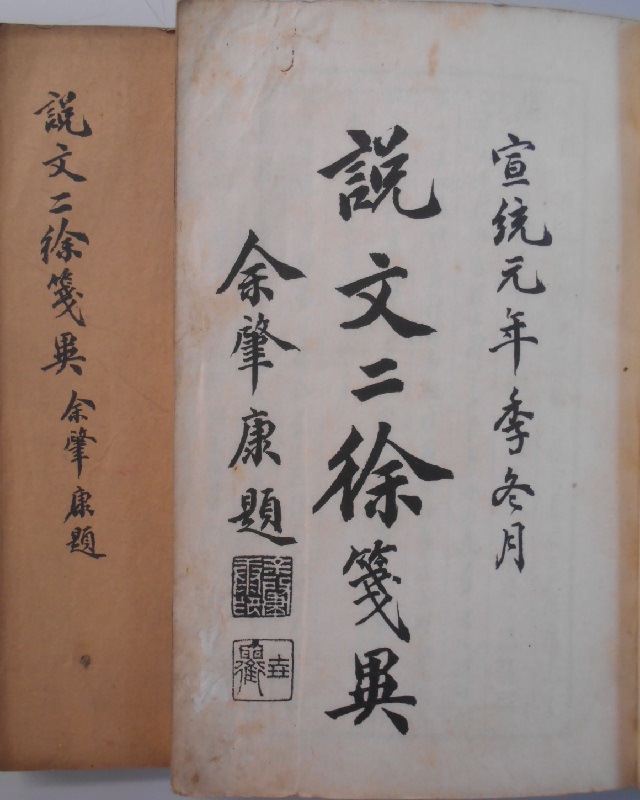 宣統元年季冬月
説文二徐箋異
余肇康題
説文二徐箋異
余肇康題